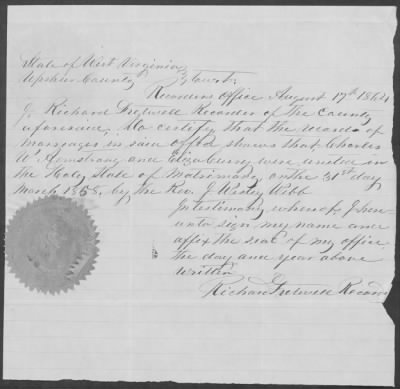 State of West Virginia
Upshur County To wit:
Recorders Office August 17th 1864
I Richard Fretwell Recorder of the County
aforesaid, Do certify that the records of
marriages in said office shews that Charles
W. Armstrong and were united in
the Holy State of Matrimony on the 31st day
March 1858, by the Rev. J. Wesley Webb
In testimony whereof I here
unto sign my name and
affix the seal of my office
the day and year above
written
Richard Fretwell Recorder